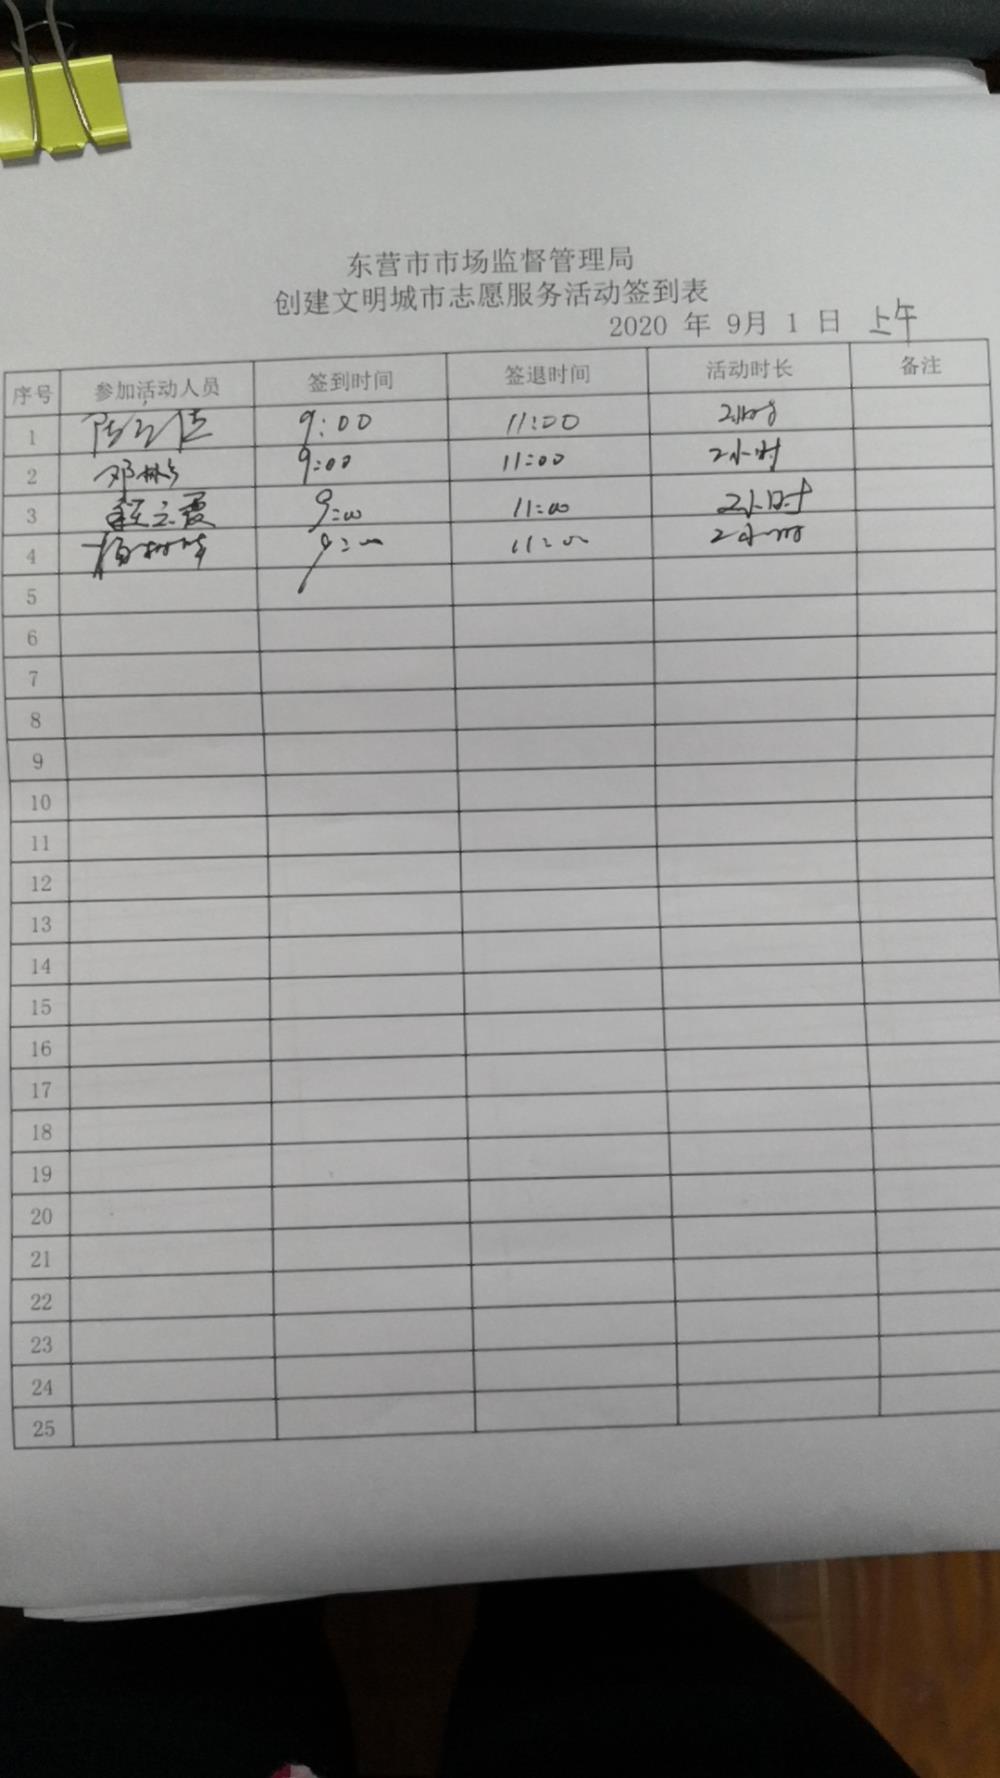 东营市市场监督管理局
创建文明城市志愿服务活动签到表
2020 年 9月 1 日 上午
序号 参加活动人员 签到时间 签退时间 活动时长 备注
1 9:00 11:00 2小时
2 9:00 11:00 2小时
3 程云霞 9:00 11:00 2小时
4 9:00 11:00 2小时
5
6
7
8
9
10
11
12
13
14
15
16
17
18
19
20
21
22
23
24
25